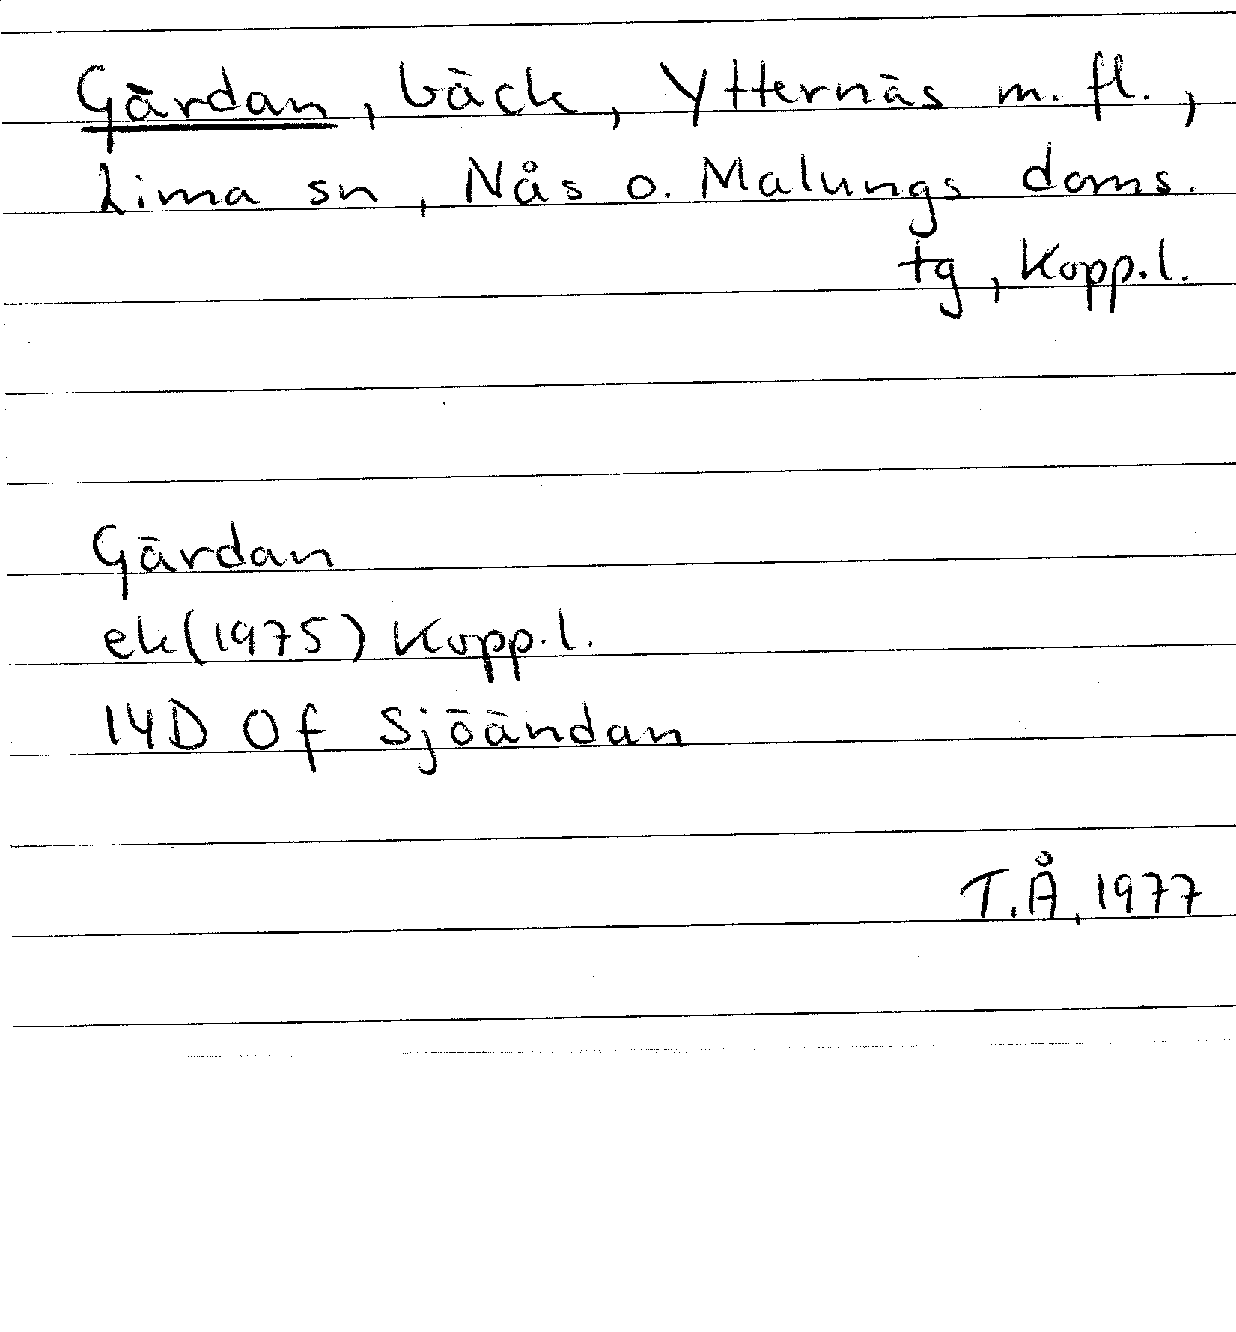 Gärdan, bäck, Ytternäs m. fl.,
Lima sn, Nås o. Malungs doms.
tg, Kopp.l.
Gärdan
ek(1975) Kopp.l.
14D 0f Sjöändan
T.Å, 1977